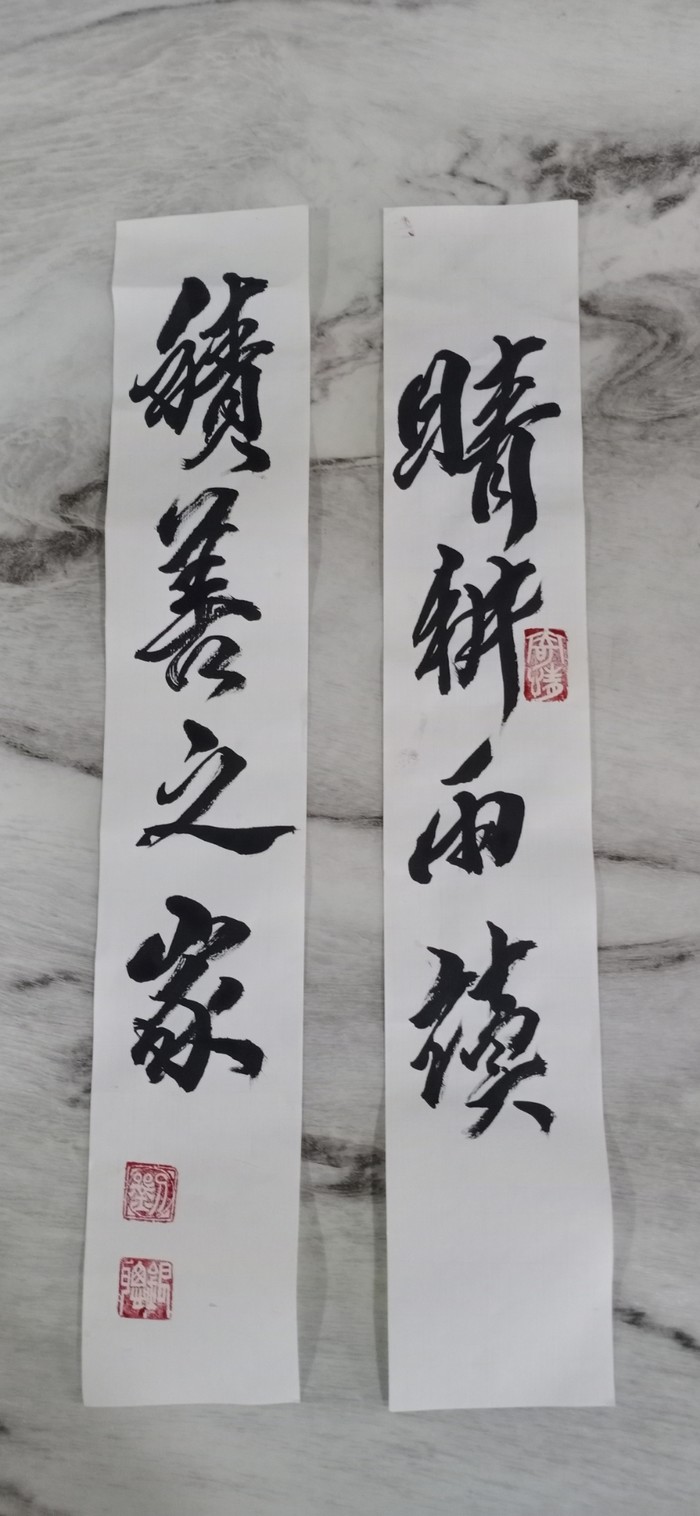 晴耕雨讀
積善之家